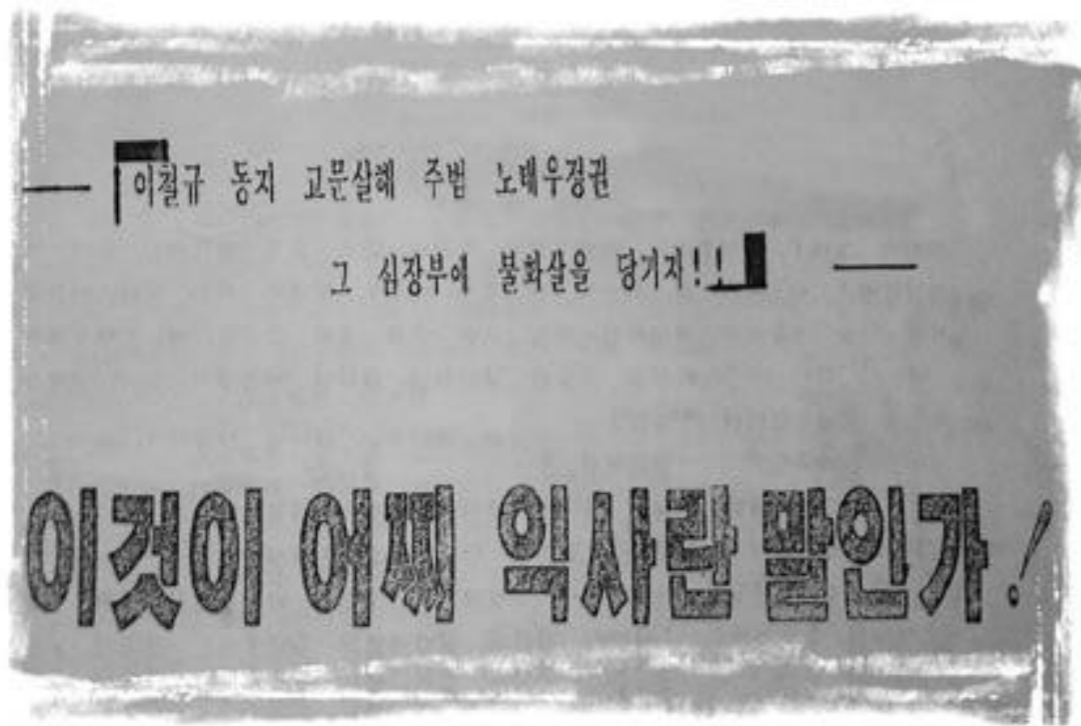 「이철규 동지 고문살해 주범 노태우정권
그 심장부에 불화살을 당기자!!」
이것이 어찌 익사란 말인가!